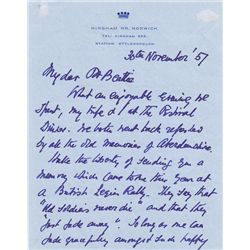 HINGHAM NR. NORWICH
TEL. HINGHAM
STATION ATTLEBOROUGH
30th November '57
My dear Mr Beattie
What an enjoyable Evening we
spent, my wife & I at the Festival
Dinner. We both went back refreshed
by all the old memories of Aberdeenshire.
I take the liberty of sending you a
memory which came to me this year at
a British Legion Rally. They say that
"Old Soldiers never die" and that they
"just fade away". So long as we can
fade gracefully amongst such happy